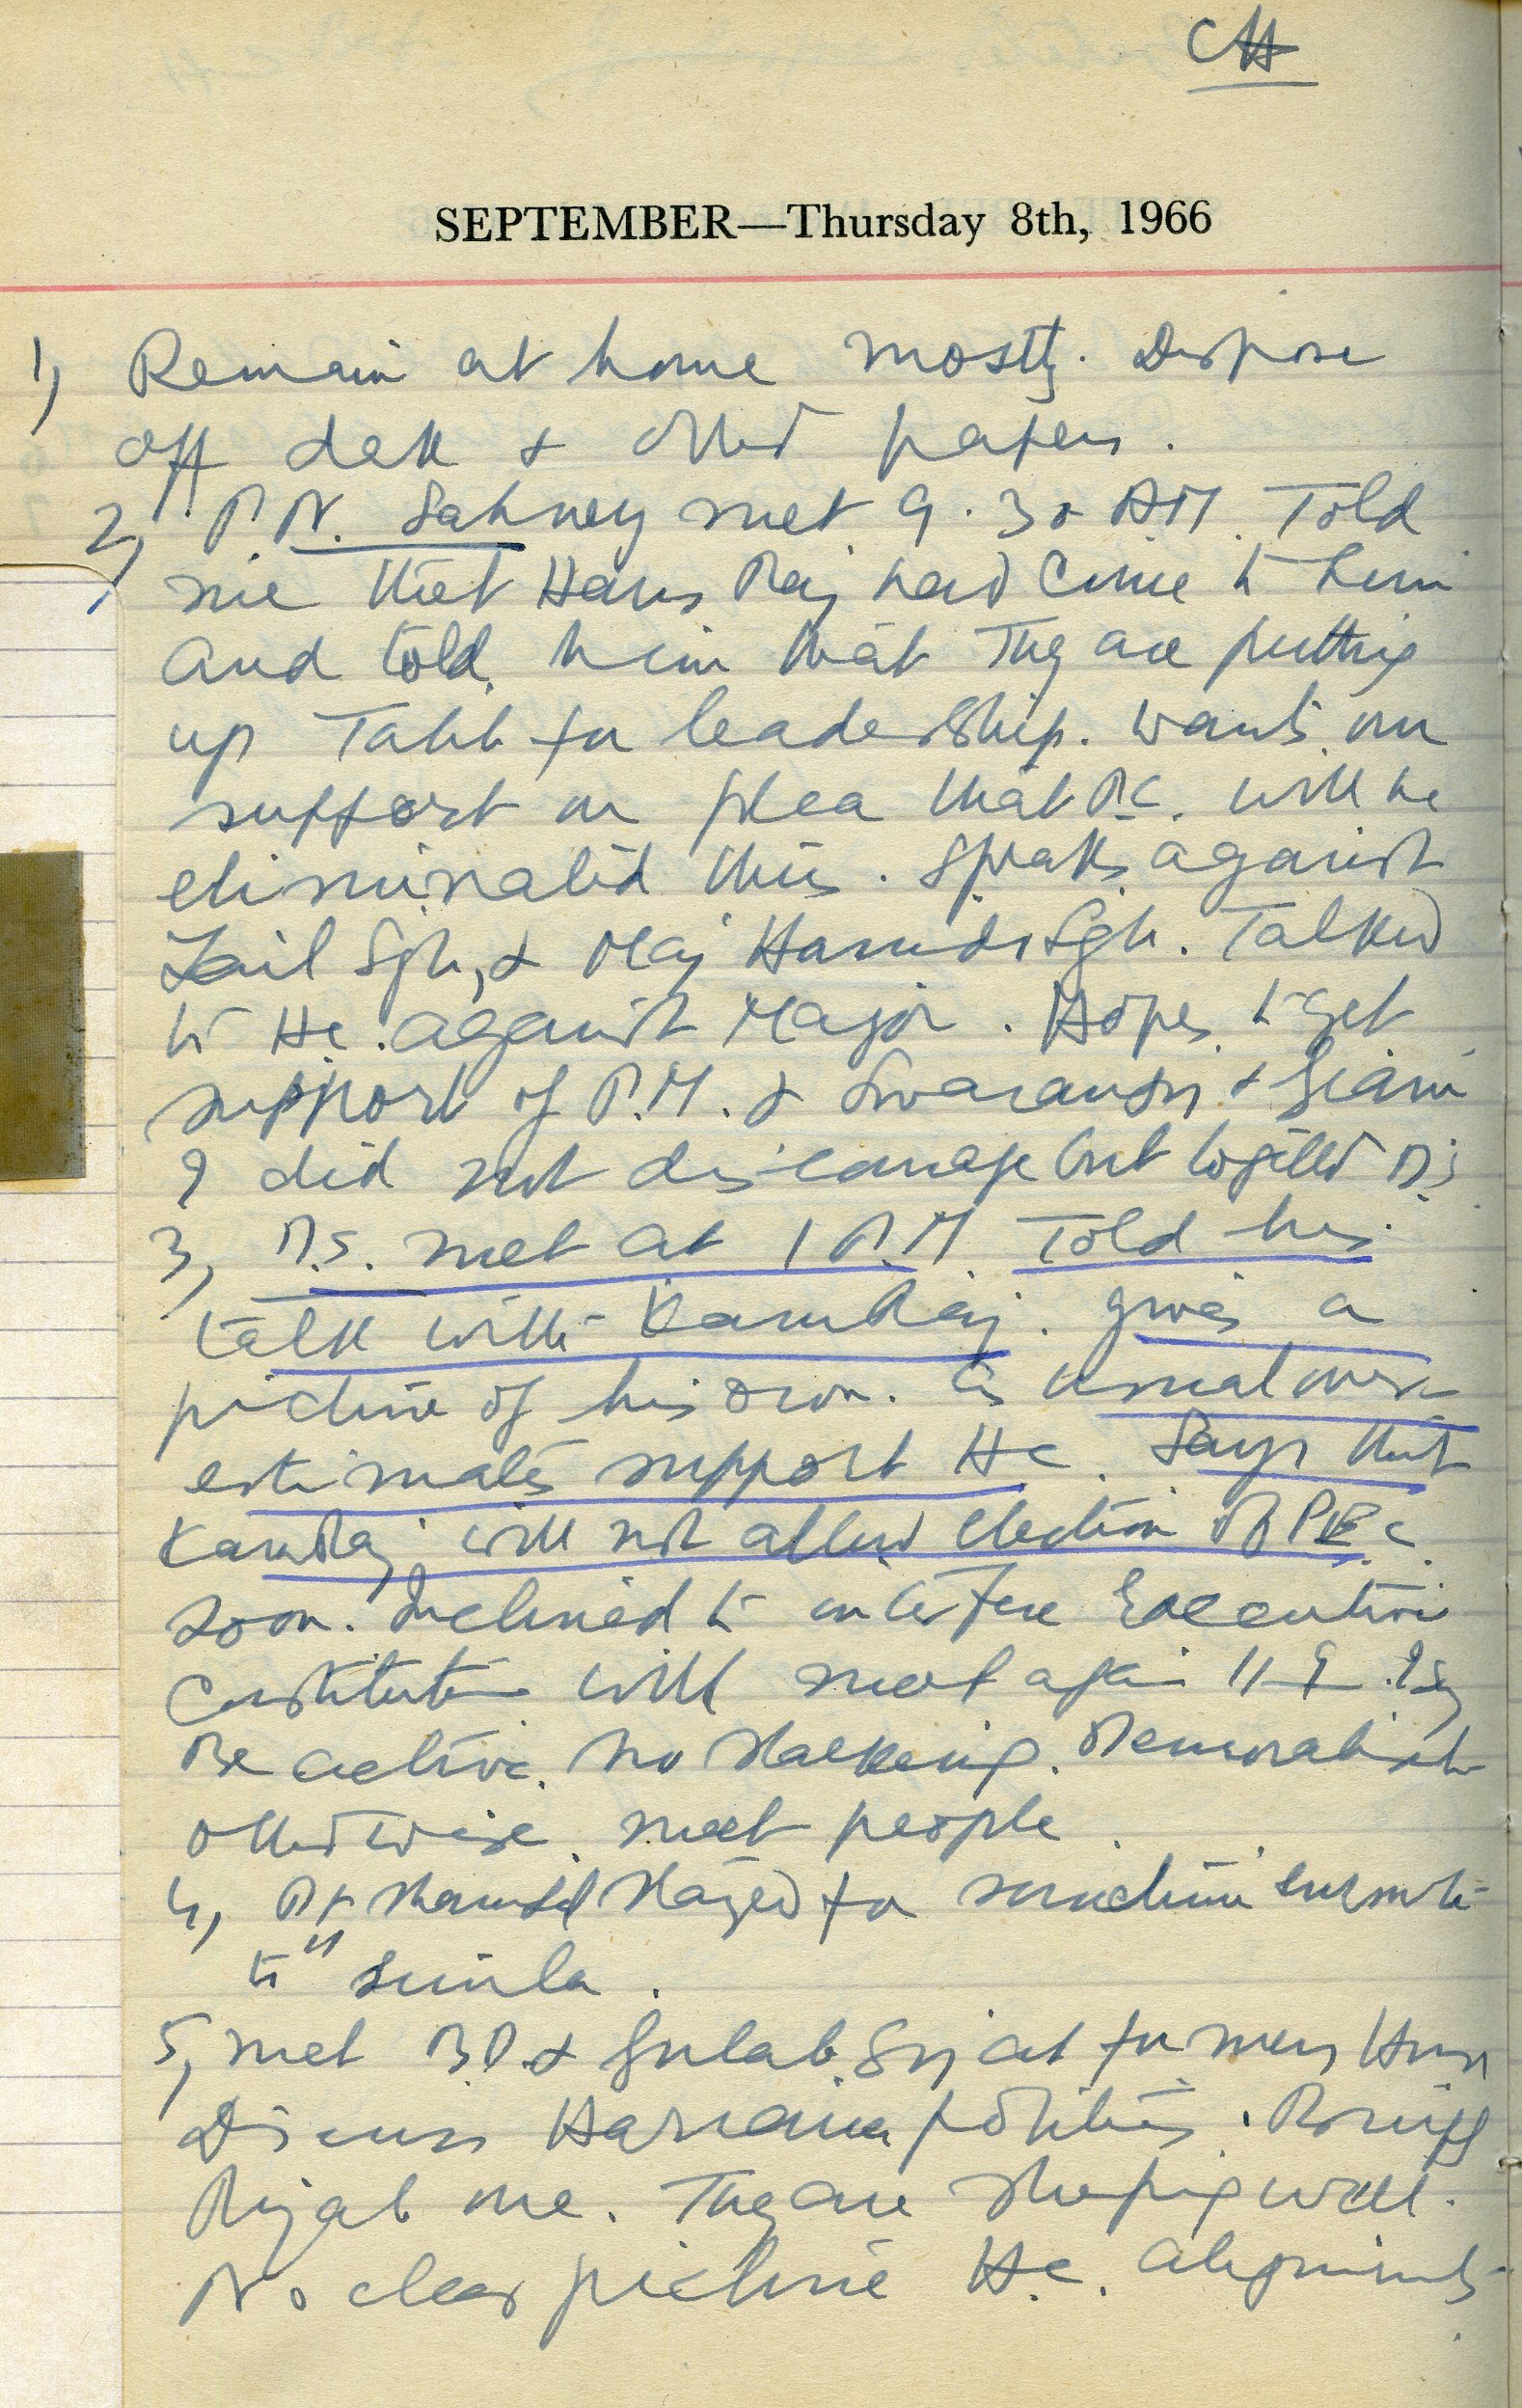 CH
SEPTEMBER—Thursday 8th, 1966
1) Remain at home mostly. Dispose
off dak & other papers.
2) P.N. Sahney met 9.30 AM. Told
me that Hans Raj had come to him
and told him that They are putting
up for leadership. wants our
support on plea that P.C. will be
eliminated thus. Speaks against
Zail Sgh, & Maj Harinder Sgh. Talked
to H.C. against Major. Hopes to get
support of P.M. & Swaransgh & Giani
I did not discourage but together
3) met at 1 P.M Told his
talk with KamRaj. gives a
picture of his own. As usual over
estimates support H.C. Says that
KamRaj will not allow election of
soon. Inclined to interfere Executive
Constitution will meet again 11-9. I say
Be active. No slackening.
otherwise. meet people.
4) stayed for sometime enroute
to Simla.
5) met & Gulab at
Discuss Hariana politics.
Punjab one. They are shaping well.
No clear picture H.C. alignments.